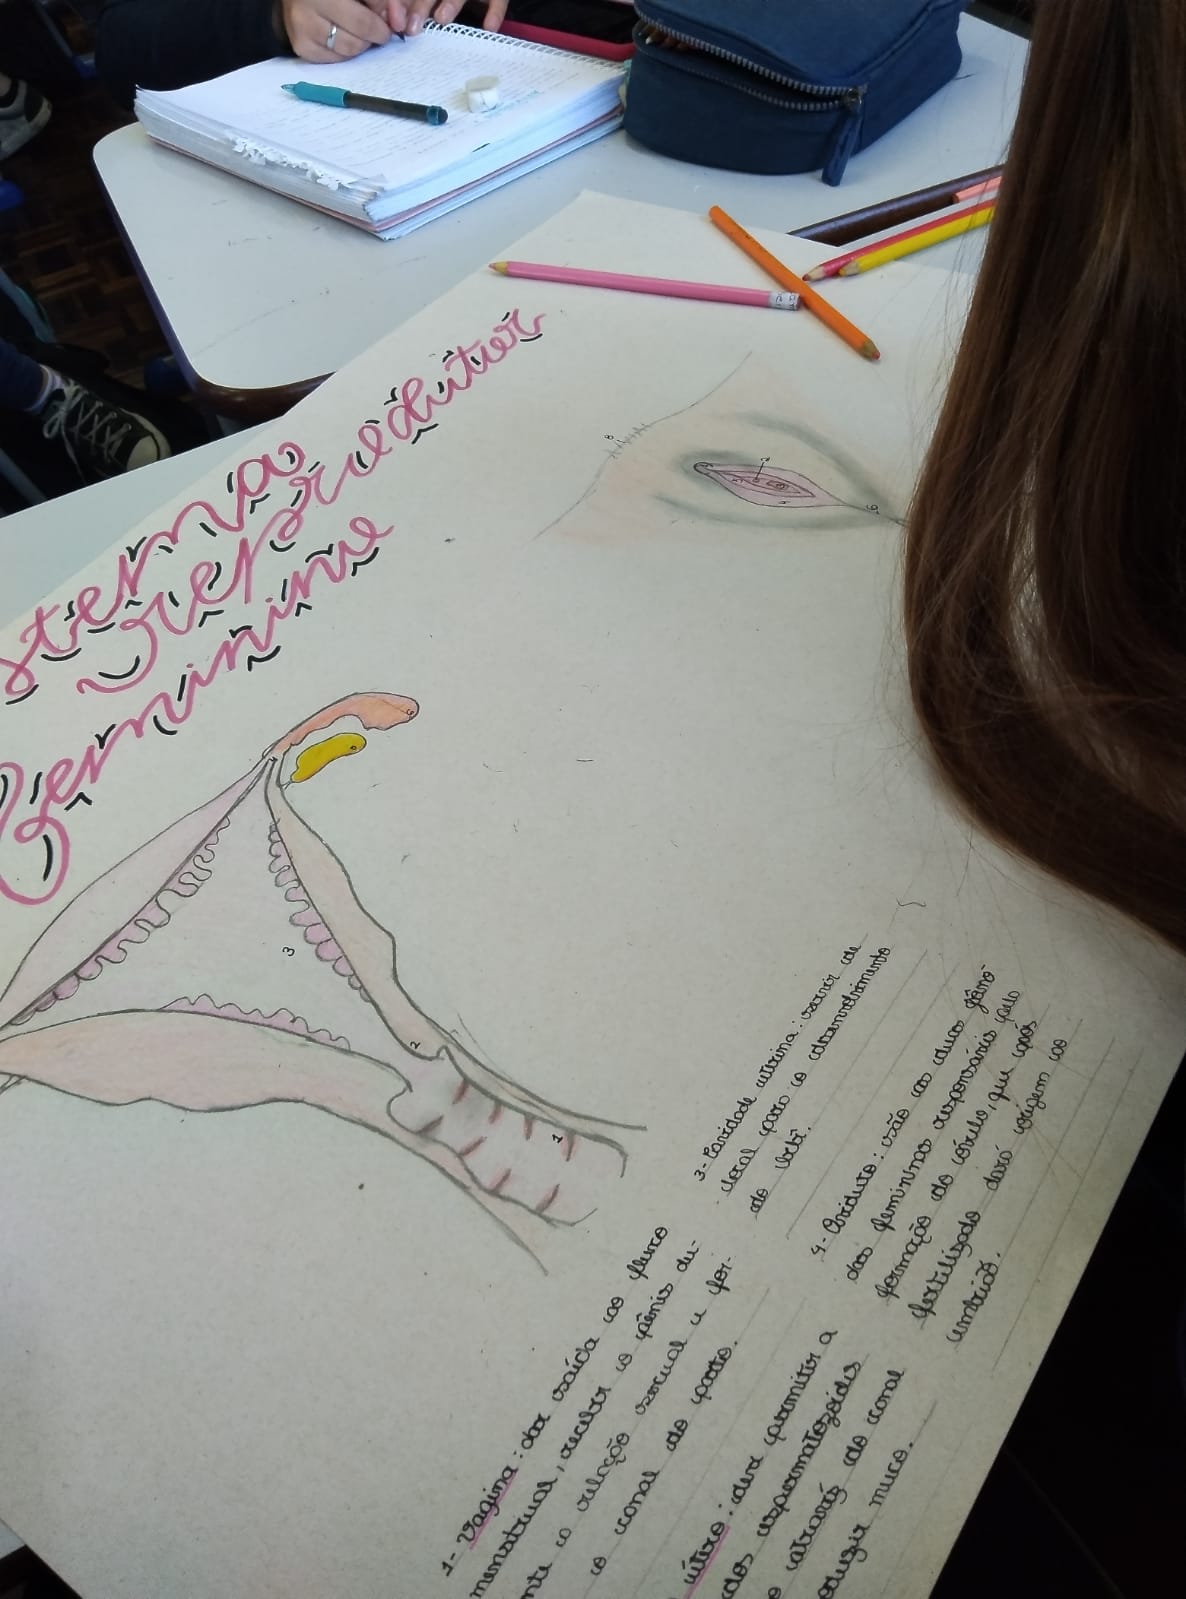 stema
Reprodutor
Feminino
1- Vagina: dar saída ao fluxo
menstrual, receber o pênis du-
nte a relação sexual e for-
o canal do parto.
útero: deve permitir a
dos espermatozoides
o através do canal
oduzir muco.
3- Cavidade uterina: servir de
local para o desenvolvimento
do bebê.
4- Ovidutos: são as duas glâno-
das femininas responsáveis pela
formação do óvulo, que após
fertilizado dará origem ao
embrião.
1
2
3
6
8
6